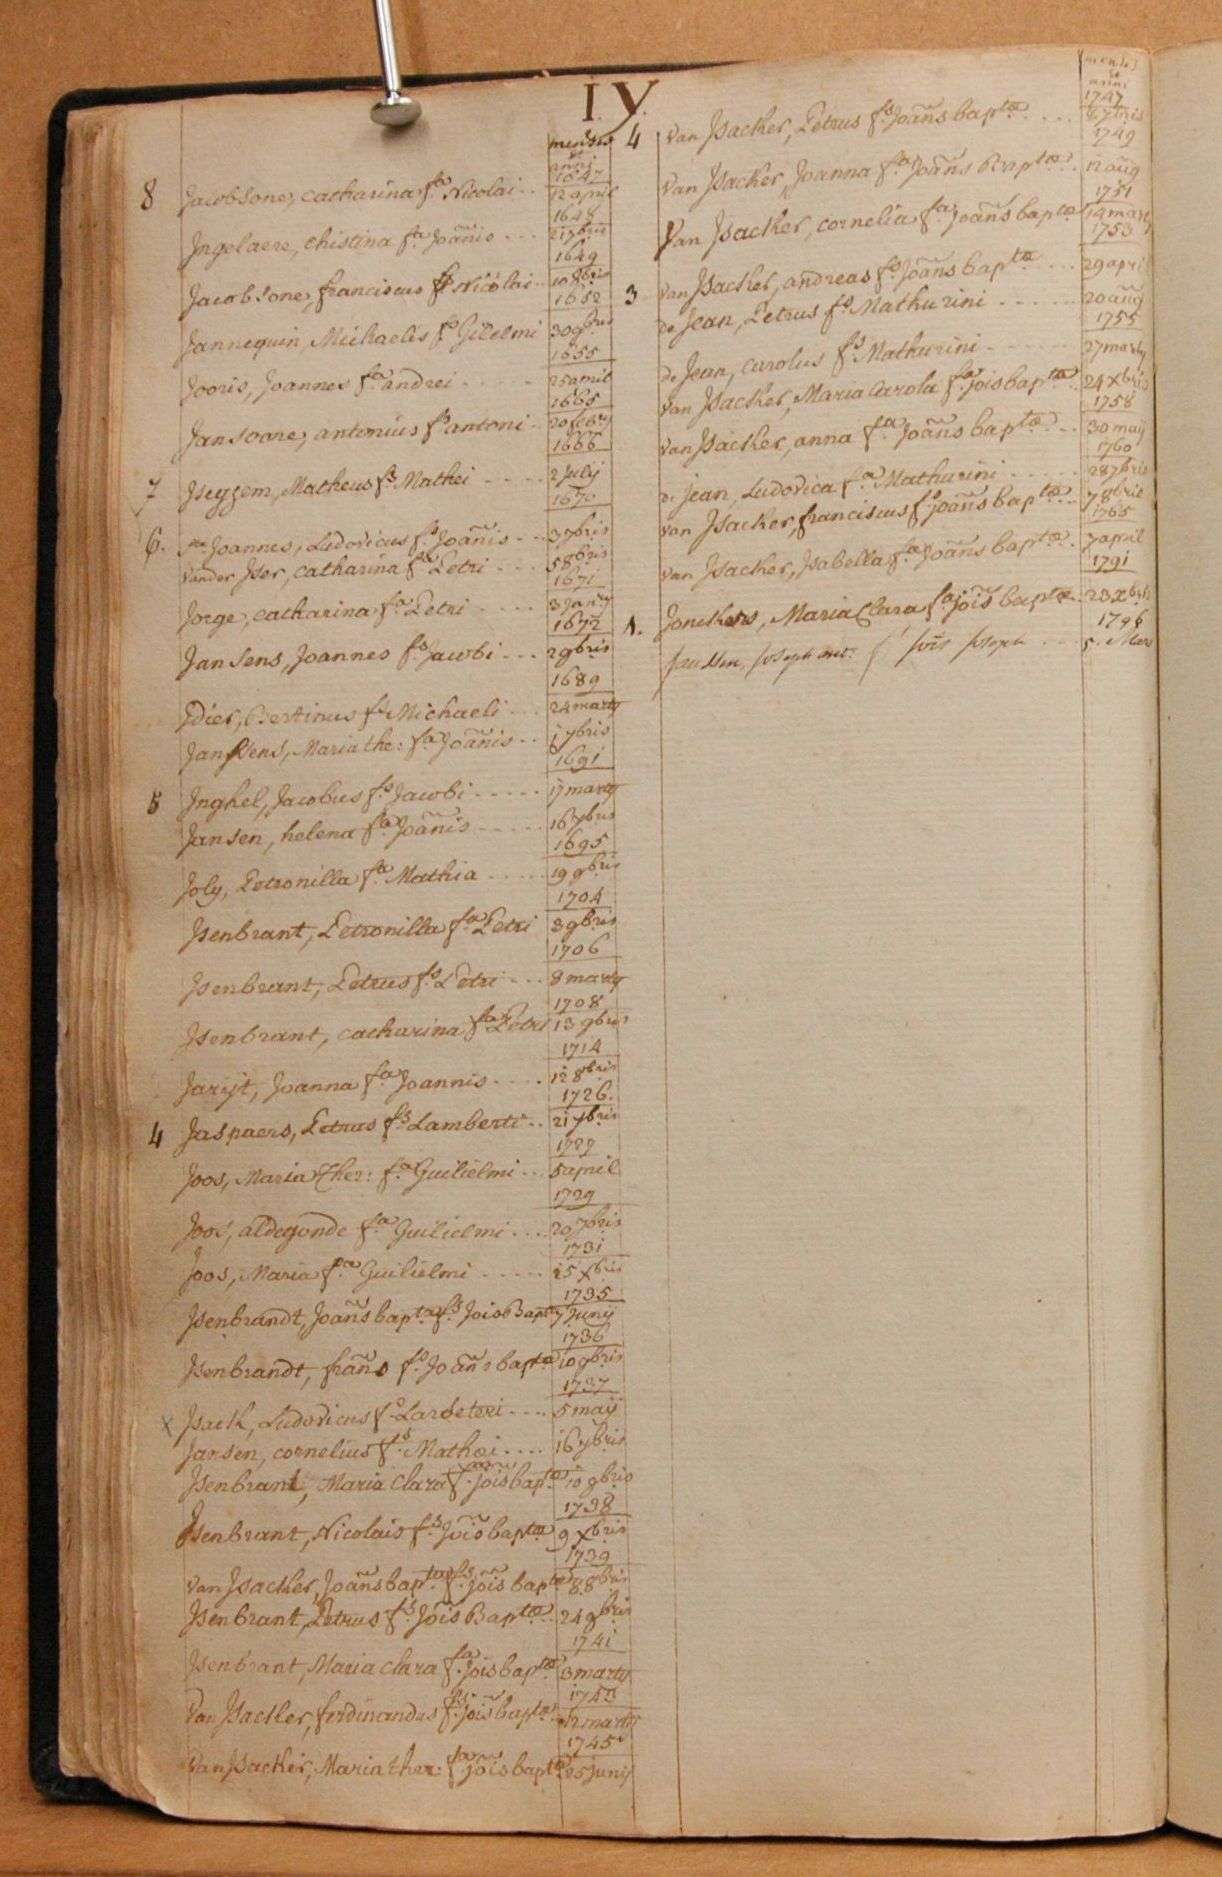 I.Y.
mensis
et
anni
1647
8 Jacobsone, catharina fa. Nicolai .. 12 april
1648
Jngelaere, Christina fa. Joañis ... 21 7bris
1649
Jacobsone, franciscus fs Nicolai .. 10 8bris
1652
Jannequin, Michaelis fs. Gilelmi 30 9bris
1655
Jooris, Joannes fa. andrei ..... 25 april
1665
Jansoone, antonius fs antoni .. 20 feb
1666
7 Jseyzem, Matheus fs Mathei ..... 2 July
1670
6. Joannes, Ludovicus fs. Joañis ... 3 7bris
vander Jser, catharina fa Petri .... 5 8bris
1671
Jorge, catharina fa. Petri ..... 3 Jany
1672
Jansens, Joannes fs. Jacobi ... 2 9bris
1689
Jdier, Bertinus fs Michaeli ... 24 marty
Janssens, Maria the: fa. Joañis .. 1 7bris
1691
5 Jnghel, Jacobus fs. Jacobi ..... 17 marty
Jansen, helena fa. Joañis ..... 16 7bris
1695
Joly, Petronilla fa. Mathia ..... 19 9bris
1704
Jsenbrant, Petronilla fa. Petri 8 9bris
1706
Jsenbrant, Petrus fs. Petri ... 8 marty
1708
Jsenbrant, catharina fa Petri 13 9bris
1714
Jarijt, Joanna fa. Joannis .... 12 8bris
1726.
4 Jaspaers, Petrus fs. Lamberti .. 21 7bris
1727
Joos, Maria Ther: fa. Guilielmi ... 5 april
1729
Joos, aldegonde fa. Guilielmi ... 20 7bris
1731
Joos, Maria fa. Guilielmi ..... 25 Xbris
1735
Jsenbrandt, Joañs bapta fs. Jois Bapta 7 Juny
1736
Jsenbrandt, frañs fs. Joañs bapta 10 9bris
1737
x Jsack, Ludovicus fs. ... 5 maij
Jansen, cornelius fs. Mathei .... 16 7bris
Jsenbrant, Maria Clara fa. Jois bapta 10 9bris
1738
Jsenbrant, Nicolais fs. Jois bapta 9 Xbris
1739
van Jsacker, Joañs bapta fs. Jois bapta 8 8bris
Jsenbrant, Petrus fs. Jois Bapta .. 24 9bris
1741
Jsenbrant, Maria Clara fa. Jois bapta 3 marty
Van Jsacker, ferdinandus fs. Jois bapta 12 marty
1745
van Jsacker, Maria ther: fa. Jois bapta 25 Juny
menses
et
anni
1747
4 van Jsacker, Petrus fs Joañs bapta .... 8 7bris
1749
van Jsacker, Joanna fa. Joañs Bapta . 12 aug
1751
van Jsacker, cornelia fa. Joañs bapta 14 marty
1753
van Jsacker, andreas fs. Joañs bapta ... 29 april
3 de Jean, Petrus fs. Mathurini ...... 20 aug
1755
de Jean, carolus fs. Mathurini ...... 27 marty
van Jsacker, Maria Carola fa. Jois bapta . 24 Xbris
1758
van Jsacker, anna fa. Joañs bapta ... 30 maij
1760
de Jean, Ludovica fa. Mathurini ..... 28 7bris
van Jsacker, franciscus fs Joañs bapta ... 7 8bris
1765
van Jsacker, Jsabella fa. Joañs bapta . 7 april
1791
1. Jonckers, Maria Clara fa Jois bapta . 23 Xbris
Joseph ... 5. Mars